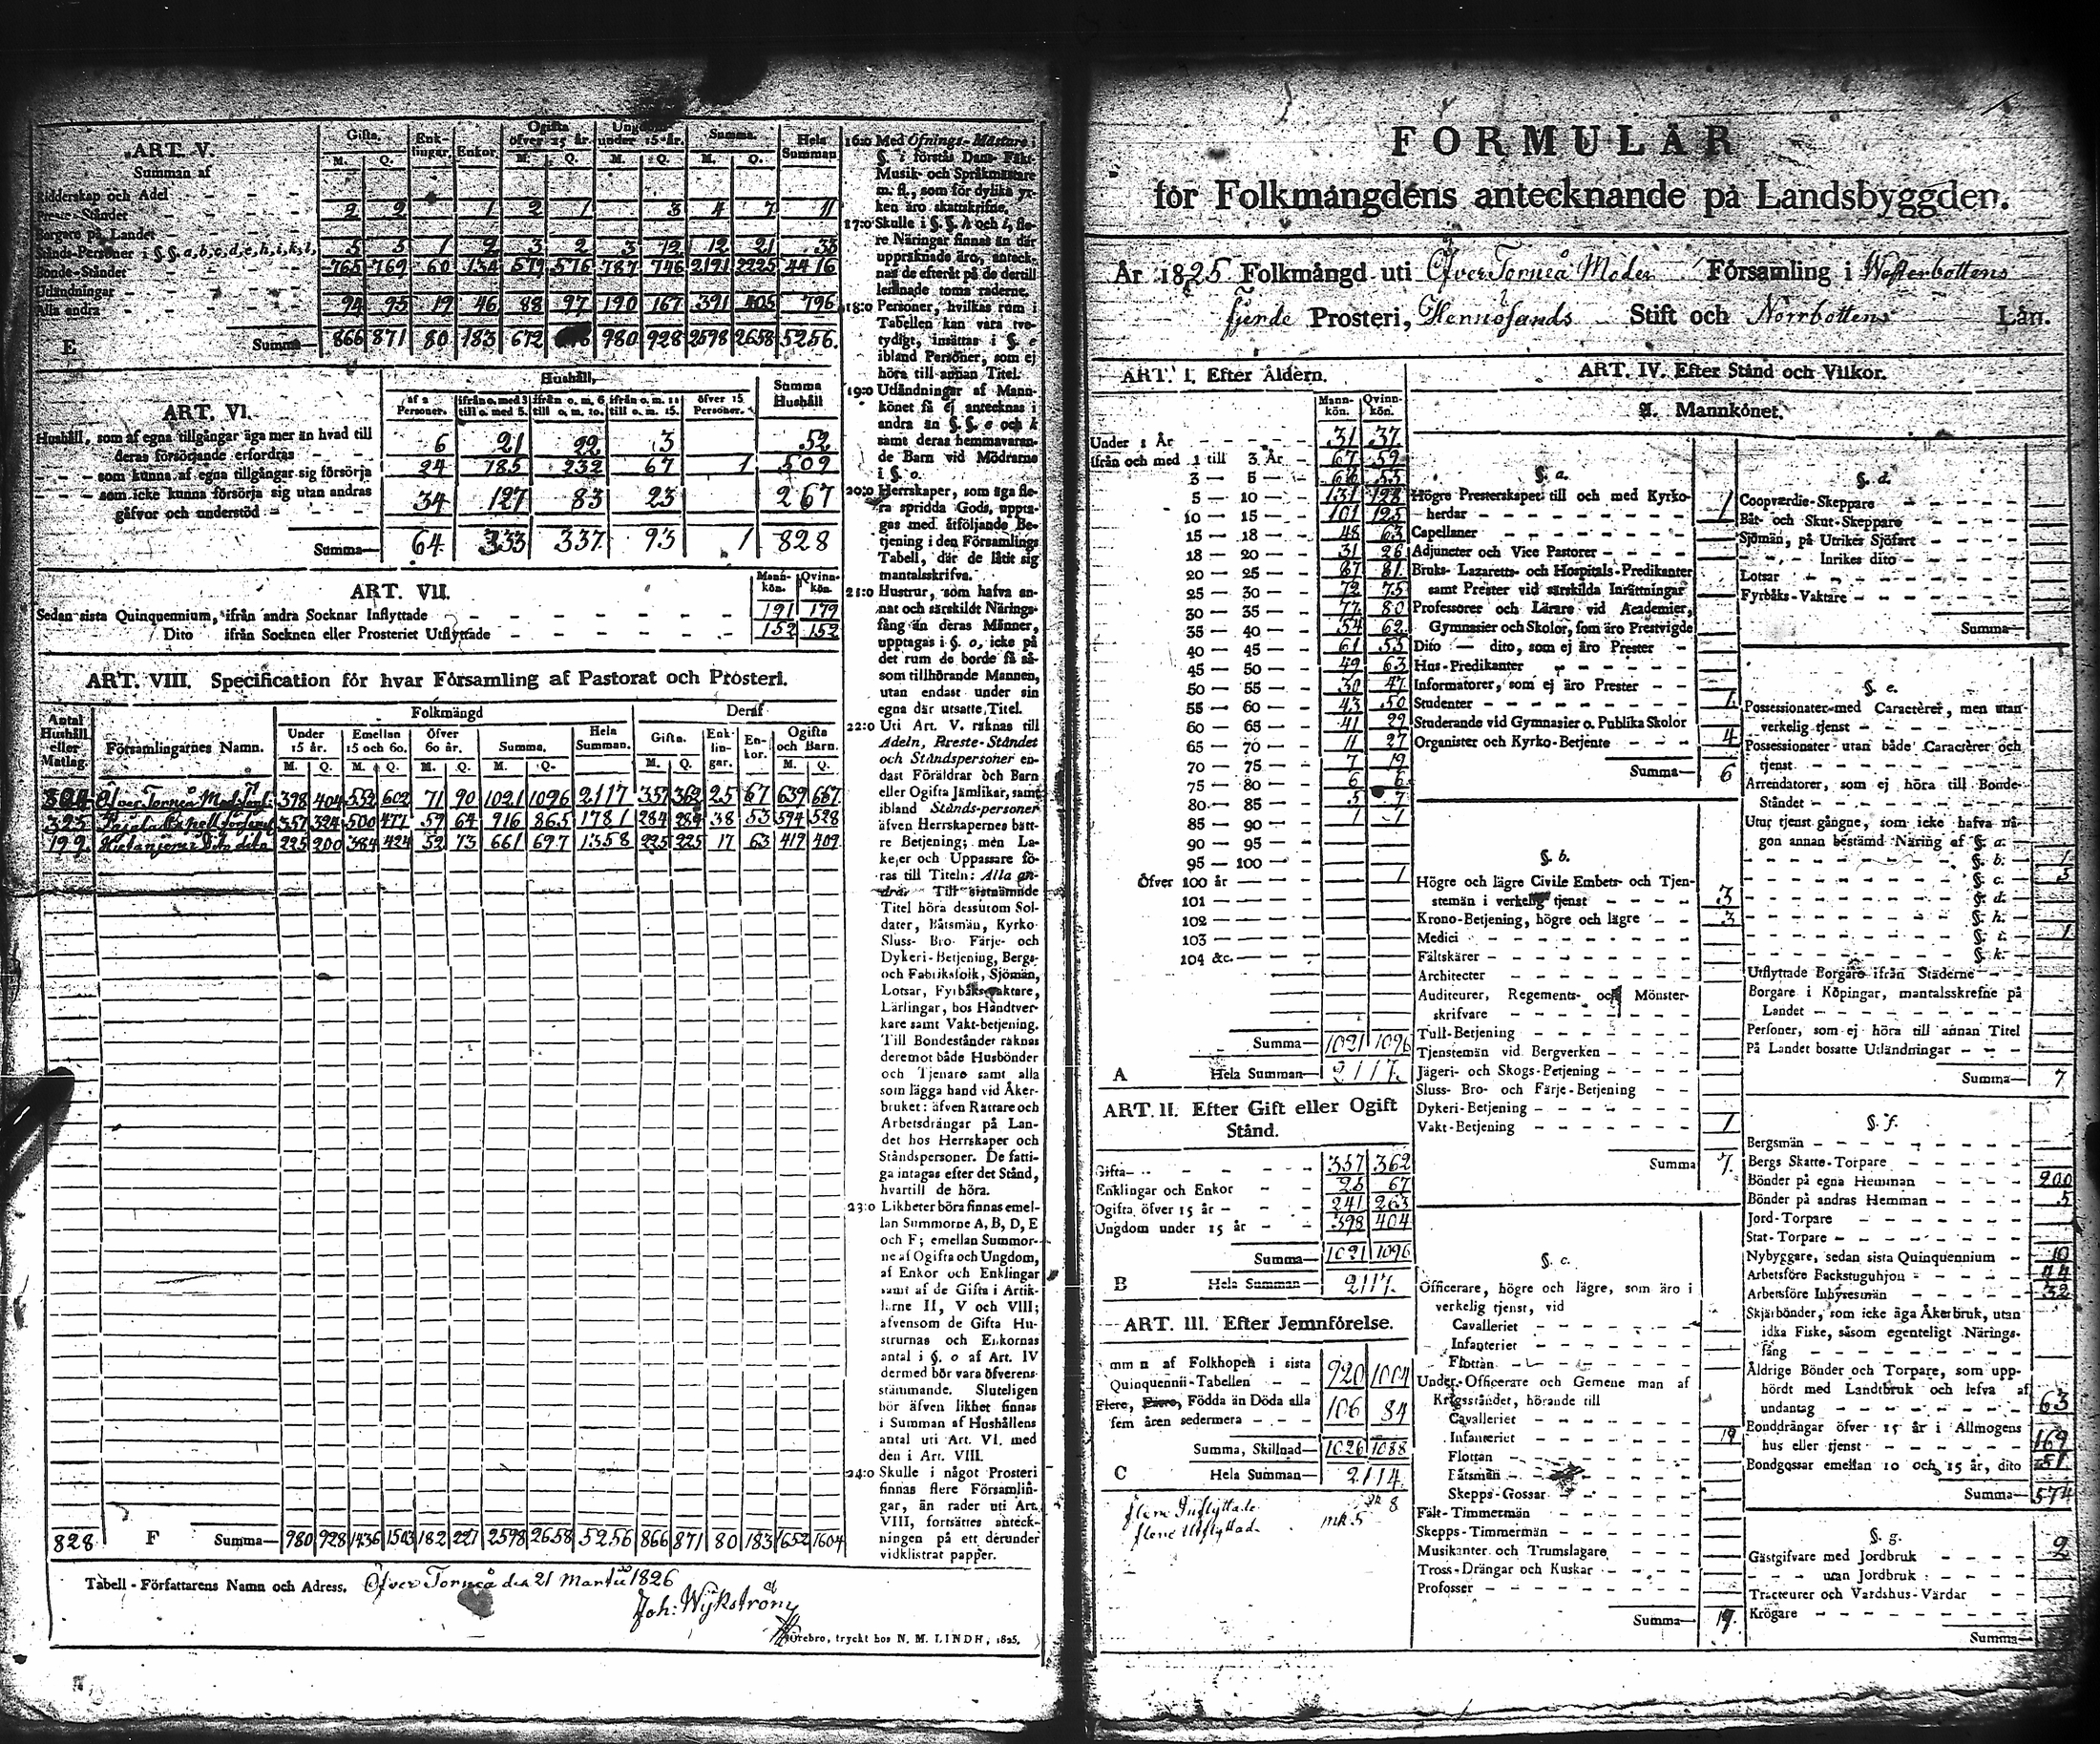 ART. V.
Summan af
Gifta. Enklingar. Enkor. Ogifta öfver 15 år. Ungdom under 15 år. Summa. Hela Summan
M. Q. M. Q. M. Q. M. Q.
Ridderskap och Adel
Preste-Ståndet 2 2 1 2 1 3 4 7 11
Borgare på Landet
Stånds-Personer i §.§. a, b, c, d, e, h, i, k, l, 5 5 1 2 3 2 3 12 12 21 33
Bonde-Ståndet 765 769 60 134 579 576 787 746 2191 2225 4416
Utländningar
Alla andra 94 95 19 46 88 97 190 167 391 405 796
E Summa 866 871 80 183 672 980 928 2598 2658 5256.
ART. VI.
Hushåll,
af 2 Personer. ifrån o. med 3 till o. med 5. ifrån o. m. 6 till o. m. 10. ifrån o. m. 11 till o. m. 15. öfver 15 Personer. Summa Hushåll
Hushåll, som af egna tillgångar äga mer än hvad till
deras försörjande erfordras 6 21 22 3 52
som kunna af egna tillgångar sig försörja 24 185 232 67 1 509
som icke kunna försörja sig utan andras
gåfvor och understöd 34 127 83 23 267
Summa 64 333 337 93 1 828
ART. VII.
Mann-kön. Qvinn-kön.
Sedan sista Quinquennium, ifrån andra Socknar Inflyttade 191 179
Dito ifrån Socknen eller Prosteriet Utflyttade 152 152
ART. VIII. Specification för hvar Församling af Pastorat och Prosteri.
Antal Hushåll eller Matlag. Församlingarnes Namn. Folkmängd Deraf
Under 15 år. Emellan 15 och 60. Öfver 60 år. Summa. Hela Summan. Gifta. Enklingar. Enkor. Ogifta och Barn.
M. Q. M. Q. M. Q. M. Q. M. Q. M. Q.
304 Öfver Torneå Mod. förs: 398 404 552 602 71 90 1021 1096 2117 357 362 25 67 639 667
325 Pajala Capell församl 357 324 500 477 59 64 916 865 1781 284 284 38 53 594 528
199. Hietaniemi Dito dito 225 200 384 424 52 73 661 697 1358 225 225 17 63 419 409
828 F Summa 980 928 1436 1503 182 227 2598 2658 5256 866 871 80 183 1652 1604
Tabell-Författarens Namn och Adress. Öfver Torneå den 21 Martii 1826
Joh: Wijkström
Örebro, tryckt hos N. M. LINDH, 1825.
16:o Med Öfnings-Mästare i
§. i förstås Dans- Fäkt-
Musik- och Språkmästare
m. fl., som för dylika yr-
ken äro skattskrifne.
17:o Skulle i §. §. h och i, fle-
re Näringar finnas än där
uppräknade äro, anteck-
nas de efteråt på de dertill
lemnade toma raderne.
18:o Personer, hvilkas rum i
Tabellen kan vara tve-
tydigt, insättas i §. e
ibland Personer, som ej
höra till annan Titel.
19:o Utländningar af Mann-
könet få ej antecknas i
andra än §. §. e och k
samt deras hemmavaran-
de Barn vid Mödrarne
i §. o.
20:o Herrskaper, som äga fle-
ra spridda Gods, uppta-
gas med åtföljande Be-
tjening i den Församlings
Tabell, där de låtit sig
mantalsskrifva.
21:o Hustrur, som hafva an-
nat och särskildt Närings-
fång än deras Männer,
upptagas i §. o, icke på
det rum de borde få så-
som tillhörande Mannen,
utan endast under sin
egna där utsatte Titel.
22:o Uti Art. V. räknas till
Adeln, Preste-Ståndet
och Ståndspersoner en-
dast Föräldrar och Barn
eller Ogifta Jämlikar, samt
ibland Stånds-personer
äfven Herrskapernes bätt-
re Betjening; men La-
kejer och Uppassare fö-
ras till Titeln: Alla an-
dra. Till sistnämnde
Titel höra dessutom Sol-
dater, Båtsmän, Kyrko-
Sluss- Bro- Färje- och
Dykeri-Betjening, Bergs-
och Fabriksfolk, Sjömän,
Lotsar, Fyrbåks-vaktare,
Lärlingar, hos Handtver-
kare samt Vakt-betjening.
Till Bondeståndet räknas
deremot både Husbönder
och Tjenare samt alla
som lägga hand vid Åker-
bruket: äfven Rättare och
Arbetsdrängar på Lan-
det hos Herrskaper och
Ståndspersoner. De fatti-
ga intagas efter det Stånd,
hvartill de höra.
23:o Likheter böra finnas emel-
lan Summorne A, B, D, E
och F; emellan Summor-
ne af Ogifta och Ungdom,
af Enkor och Enklingar
samt af de Gifta i Artik-
larne II, V och VIII;
äfvensom de Gifta Hu-
strurnas och Enkornas
antal i §. o af Art. IV
dermed bör vara öfverens-
stämmande. Sluteligen
bör äfven likhet finnas
i Summan af Hushållens
antal uti Art. VI. med
den i Art. VIII.
24:o Skulle i något Prosteri
finnas flere Församlin-
gar, än rader uti Art.
VIII, fortsättes anteck-
ningen på ett derunder
vidklistrat papper.
FORMULÄR
för Folkmängdens antecknande på Landsbyggden.
År 1825 Folkmängd uti Öfver Torneå Moder Församling i Westerbottens
fjerde Prosteri, Hernösands Stift och Norrbottens Län.
ART. I. Efter Åldern.
Mann-kön. Qvinn-kön.
Under 1 År 31 37
ifrån och med 1 till 3 År 67 59
3 — 5 — 68 53
5 — 10 — 131 128
10 — 15 — 101 125
15 — 18 — 48 63
18 — 20 — 31 26
20 — 25 — 87 81
25 — 30 — 72 75
30 — 35 — 77 80
35 — 40 — 54 62
40 — 45 — 61 53
45 — 50 — 49 63
50 — 55 — 30 47
55 — 60 — 43 50
60 — 65 — 41 29
65 — 70 — 11 27
70 — 75 — 7 19
75 — 80 — 6 6
80 — 85 — 5 7
85 — 90 — 1 1
90 — 95 —
95 — 100 —
Öfver 100 år — 1
101
102
103
104 &c.
Summa 1021 1096
A Hela Summan 2117.
ART. II. Efter Gift eller Ogift
Stånd.
Gifta 357 362
Enklingar och Enkor 25 67
Ogifta öfver 15 år 241 263
Ungdom under 15 år 398 404
Summa 1021 1096
B Hela Summan 2117.
ART. III. Efter Jemnförelse.
mman af Folkhopen i sista
Quinquennii-Tabellen 920 1004
Flere, Födda än Döda alla
fem åren sedermera 106 84
Summa, Skillnad 1026 1088
C Hela Summan 2114.
flere Inflyttade 8
flere Utflyttad. mk 5
ART. IV. Efter Stånd och Vilkor.
A. Mannkönet.
§. a.
Högre Presterskapet till och med Kyrko-
herdar 1
Capellaner
Adjuncter och Vice Pastorer
Bruks- Lazaretts- och Hospitals-Predikanter
samt Prester vid särskilda Inrättningar
Professorer och Lärare vid Academier,
Gymnasier och Skolor, som äro Prestvigde
Dito — dito, som ej äro Prester
Hus-Predikanter
Informatorer, som ej äro Prester
Studenter 1.
Studerande vid Gymnasier o. Publika Skolor
Organister och Kyrko-Betjente 4
Summa 6
§. b.
Högre och lägre Civile Embets- och Tjen-
stemän i verkelig tjenst 3
Krono-Betjening, högre och lägre 3
Medici
Fältskärer
Architecter
Auditeurer, Regements- och Mönster-
skrifvare
Tull-Betjening
Tjenstemän vid Bergverken
Jägeri- och Skogs-Betjening
Sluss- Bro- och Färje-Betjening
Dykeri-Betjening
Vakt-Betjening 1
Summa 7.
§. c.
Officerare, högre och lägre, som äro i
verkelig tjenst, vid
Cavalleriet
Infanteriet
Flottan
Under-Officerare och Gemene man af
Krigsståndet, hörande till
Cavalleriet
Infanteriet 19
Flottan
Båtsmän
Skepps-Gossar
Fält-Timmermän
Skepps-Timmermän
Musikanter och Trumslagare
Tross-Drängar och Kuskar
Profosser
Summa 19.
§. d.
Coopværdie-Skeppare
Båt- och Skut-Skeppare
Sjömän, på Utrikes Sjöfart
Inrikes dito
Lotsar
Fyrbåks-Vaktare
Summa
§. e.
Possessionater med Caractèrer, men utan
verkelig tjenst
Possessionater utan både Caractèrer och
tjenst
Arrendatorer, som ej höra till Bonde-
Ståndet
Utur tjenst gångne, som icke hafva nå-
gon annan bestämd Näring af §. a.
§. b. 1
§. c. 5
§. d.
§. h.
§. i. 1
§. k.
Utflyttade Borgare ifrån Städerne
Borgare i Köpingar, mantalsskrefne på
Landet
Personer, som ej höra till annan Titel
På Landet bosatte Utländningar
Summa 7
§. f.
Bergsmän
Bergs Skatte-Torpare
Bönder på egna Hemman 200
Bönder på andras Hemman 5
Jord-Torpare
Stat-Torpare
Nybyggare, sedan sista Quinquennium 10
Arbetsföre Backstuguhjon 44
Arbetsföre Inhysesmän 32
Skjärbönder, som icke äga Åkerbruk, utan
idka Fiske, såsom egenteligt Närings-
fång
Åldrige Bönder och Torpare, som upp-
hördt med Landtbruk och lefva af
undantag 63
Bonddrängar öfver 15 år i Allmogens
hus eller tjenst 169
Bondgossar emellan 10 och 15 år, dito 51
Summa 574
§. g.
Gästgifvare med Jordbruk 2
utan Jordbruk
Tracteurer och Värdshus-Värdar
Krögare
Summa